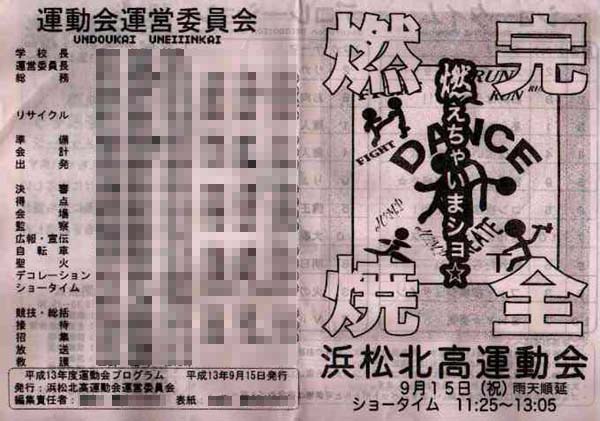 運動会運営委員会
UNDOUKAI UNEIIINKAI
学校長
運営委員長
総務
リサイクル
準備
会計
出発
決審
得点
会場
監察
広報・宣伝
自転車
聖火
デコレーション
ショータイム
競技・総括
接待
招集
放送
救護
平成13年度運動会プログラム 平成13年9月15日発行
発行：浜松北高運動会運営委員会
編集責任者： 表紙：
完全
燃焼
燃えちゃいまショ☆
RUN
RUN
RUN
FIGHT
DANCE
JUMP
JUMP
SKATE
浜松北高運動会
9月15日(祝)雨天順延
ショータイム 11:25～13:05